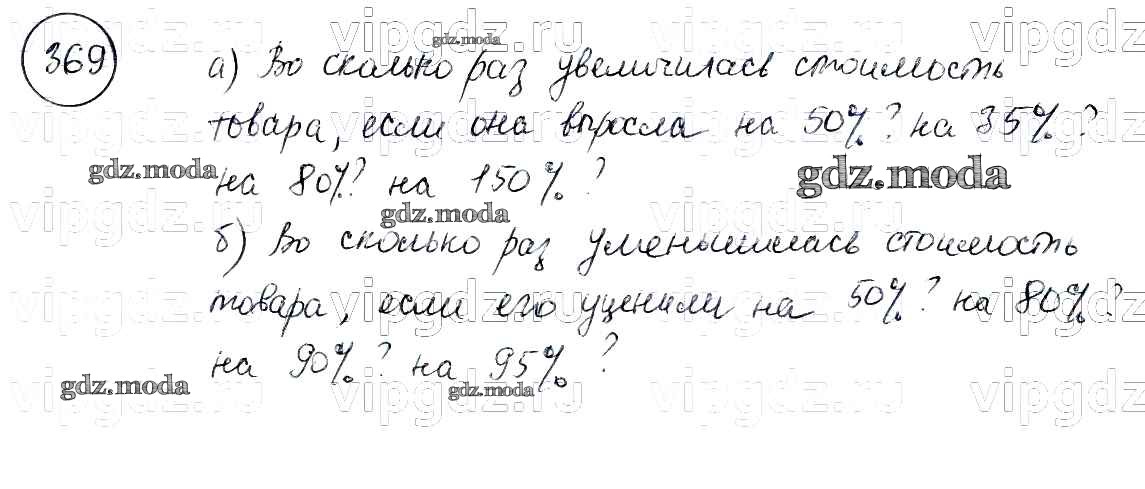 369
а) Во сколько раз увеличилась стоимость
товара, если она выросла на 50%? на 35%?
на 80%? на 150%?
б) Во сколько раз уменьшилась стоимость
товара, если его уценили на 50%? на 80%?
на 90%? на 95%?
vipgdz.ru vipgdz.ru vipgdz.ru vipgdz.ru
gdz.moda
vipgdz.ru vipgdz.ru vipgdz.ru vipgdz.ru
gdz.moda gdz.moda
vipgdz.ru vipgdz.ru vipgdz.ru vipgdz.ru
gdz.moda
vipgdz.ru vipgdz.ru vipgdz.ru vipgdz.ru
gdz.moda gdz.moda
vipgdz.ru vipgdz.ru vipgdz.ru vipgdz.ru